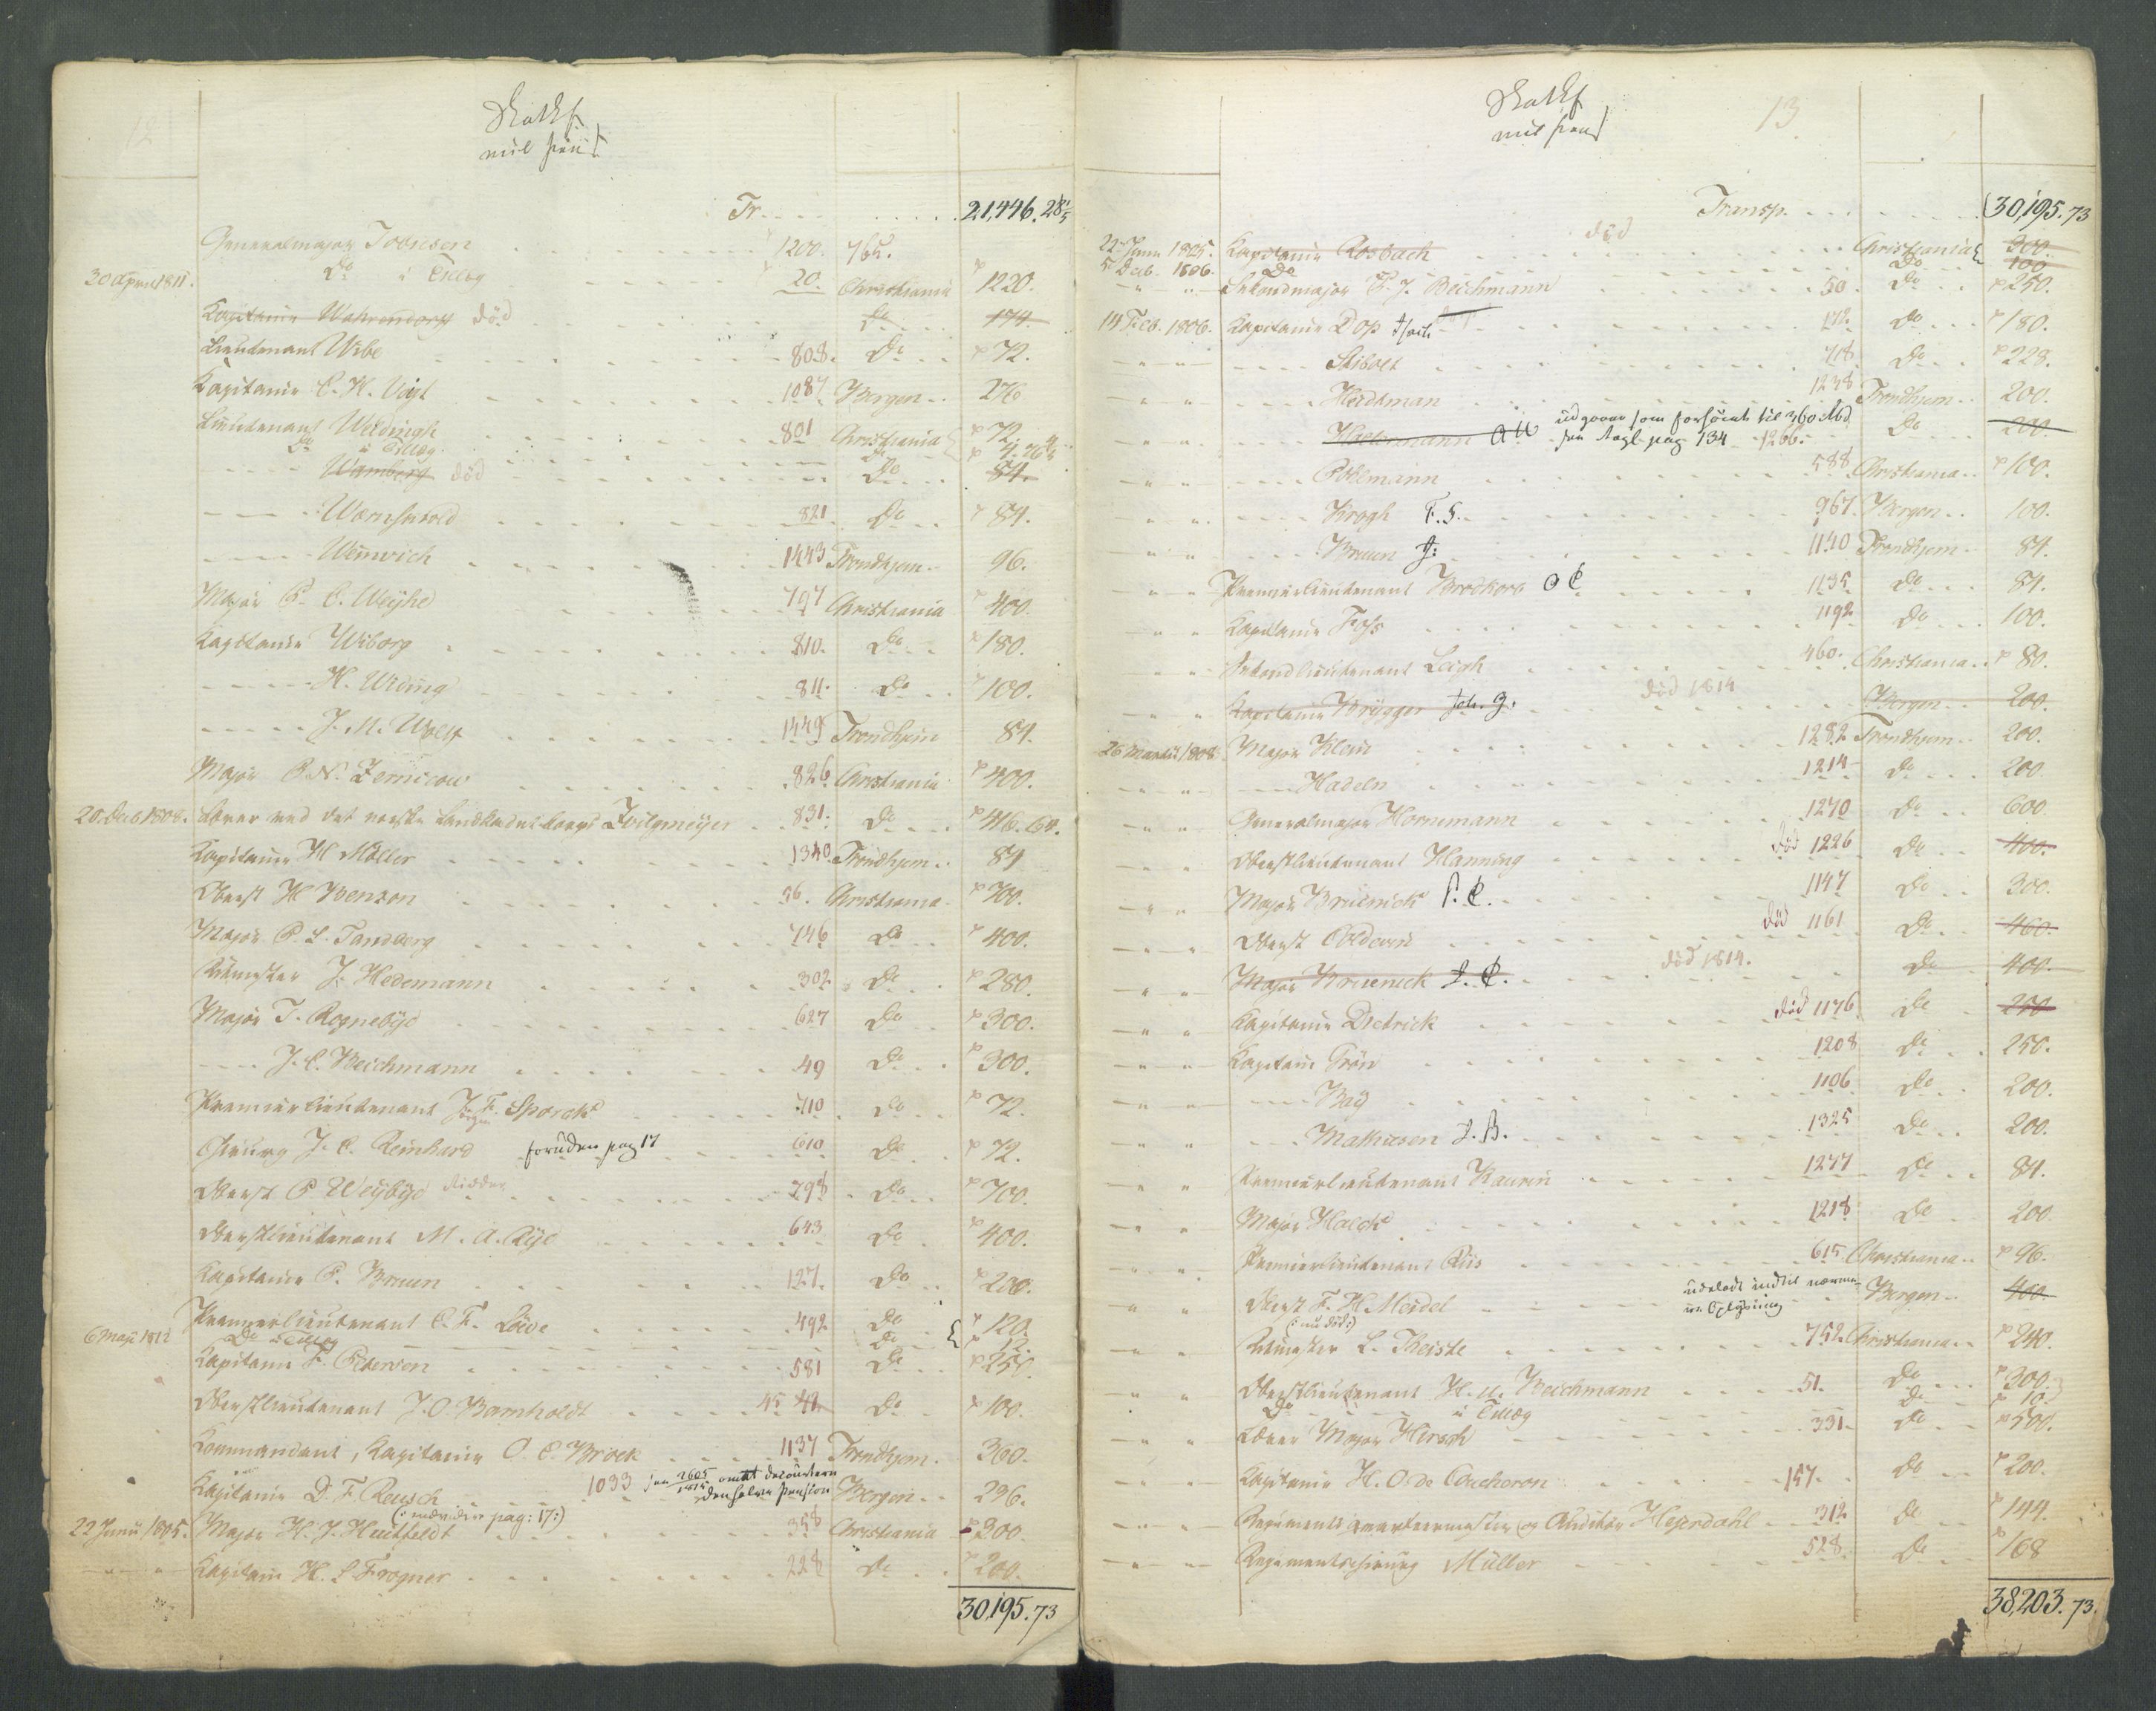 12
mil pens
Tr. . . . 21,446. 28 1/5
Generalmajor Toensen . . . 1200. 765.
30 April 1811. Do i Tillæg . . . 20. Christiania 1220.
Kapitaine Wahrendorff död . . . Do 174.
Lieutenant Wibe . . . 808. Do 72.
Kapitaine C. H. Vogt . . . 1087 Bergen 276
Lieutenant Weidingh . . . 801 Christiania 72.
Do i Tillæg . . . Do
Wamberg död . . . Do 84.
Wernskiold . . . 821 Do 84.
Weinwich . . . 1443 Trondhjem 96.
Major P. C. Weyhe . . . 797 Christiania 400.
Kapitaine Wiborg . . . 810. Do 180.
H. Widing . . . 811. Do 100.
J. M. Wolff . . . 1449 Trondhjem 84.
Major P. N. Zernicow . . . 826 Christiania 400.
20 Dec 1808. Lærer ved det norske Landkadet Corps Zwilgmeyer . . 831. Do 416. 64.
Kapitaine H Möller . . . 1340. Trondhjem 84
Oberst H Wenzon . . . 56. Christiania 700.
Major P. L. Tandberg . . . 746 Do 400.
Ritmester J. Hedemann . . . 302 Do 280.
Major T. Rognebye . . . 627 Do 300.
J. C. Beichmann . . . 49 Do 300.
Premierlieutenant J. F. Sporck . . . 710 Do 72.
Chirurg J. C. Reinhard foruden pag 17 . . . 610 Do 72.
Oberst P Weybye . . . 798 Do 700.
Oberstlieutenant M. A. Rye . . . 643 Do 400.
Kapitaine P. Bruun . . . 127. Do 200.
Premierlieutenant C. F. Löwe . . . 492 Do 120.
6 Maji 1812 Do i Tillæg . . . Do 12.
Kapitaine F. Petersen . . . 581 Do 250.
Oberstlieutenant J. O. Bamholdt . . . 45 Do 100.
Kommandant, Kapitaine O. C. Brock . . . 1137 Trondhjem. 360.
Kapitaine D. F. Reusch . . . 1033 Bergen 296.
22 Junii 1805. Major H. J. Huitfeldt . . . 358 Christiania 300.
Kapitaine H. L Frogner . . . 228 Do 200.
30,195. 73
13
mil pens
Transp. . . . 30,195. 73
22 Junii 1805. Kapitaine Rosbach död . . . Christiania 300.
5 Dec. 1806. Do . . . Do 100
Sekondmajor F. J. Beichmann . . . 50. Do 250.
14 Feb. 1806. Kapitaine Dop . . . Do 180.
Stibolt . . . 718 Do 228.
Heidtman . . . 1238 Trondhjem 200.
udgaaer som forhöiet til 360
see pag 134 1266. Do 200.
Pohlmann . . . 588 Christiania 100.
Krogh F. S. . . . 967. Bergen 100.
Bruun J: . . . 1140 Trondhjem 84.
Premierlieutenant Brodkorb O C . . . 1135 Do 84.
Kapitaine Foss . . . 1192 Do 100.
Sekondlieutenant Leigh . . . 460. Christiania 80.
Kapitaine Brygger Joh. G. död 1814 Bergen 200.
26 Martii 1808. Major Klein . . . 1282 Trondhjem 200.
Hadeln . . . 1214 Do 200
Generalmajor Hornemann . . . 1270 Do 600
Oberstlieutenant Hanning . . . död 1226 Do 400.
Major Bruenick P. C. . . . 1147 Do 300.
Oberst Coldevin . . . död 1161 Do 460.
Major Bruenick J. C. död 1814. Do 400.
Kapitaine Dietrick . . . död 1176 Do 200
Kapitain Grön . . . 1208 Do 250.
Bay . . . 1106 Do 200.
Mathiesen J. B. . . . 1325 Do 200.
Premierlieutenant Kaurin . . . 1277 Do 84.
Major Halck . . . 1218 Do 200
Premierlieutenant Riis . . . 615 Christiania 96.
Oberst F. H. Meidel . . . udeladt indtil nærme-
re Oplysning Bergen 400.
(: nu död :)
Ritmester L. Theiste . . . 752 Christiania 240.
Oberstlieutenant H. U. Beichmann . . . 51. Do 300.
Do i Tillæg . . . Do 10.
Lærer Major Hirsch . . . 331. Do 500.
Kapitaine H. O. de Coucheron . . . 157. Do 200.
Regiments qvarteermester og Auditör Hejerdahl . . 312 Do 144.
Regimentschirurg Müller . . . 528. Do 168
38,203. 73.